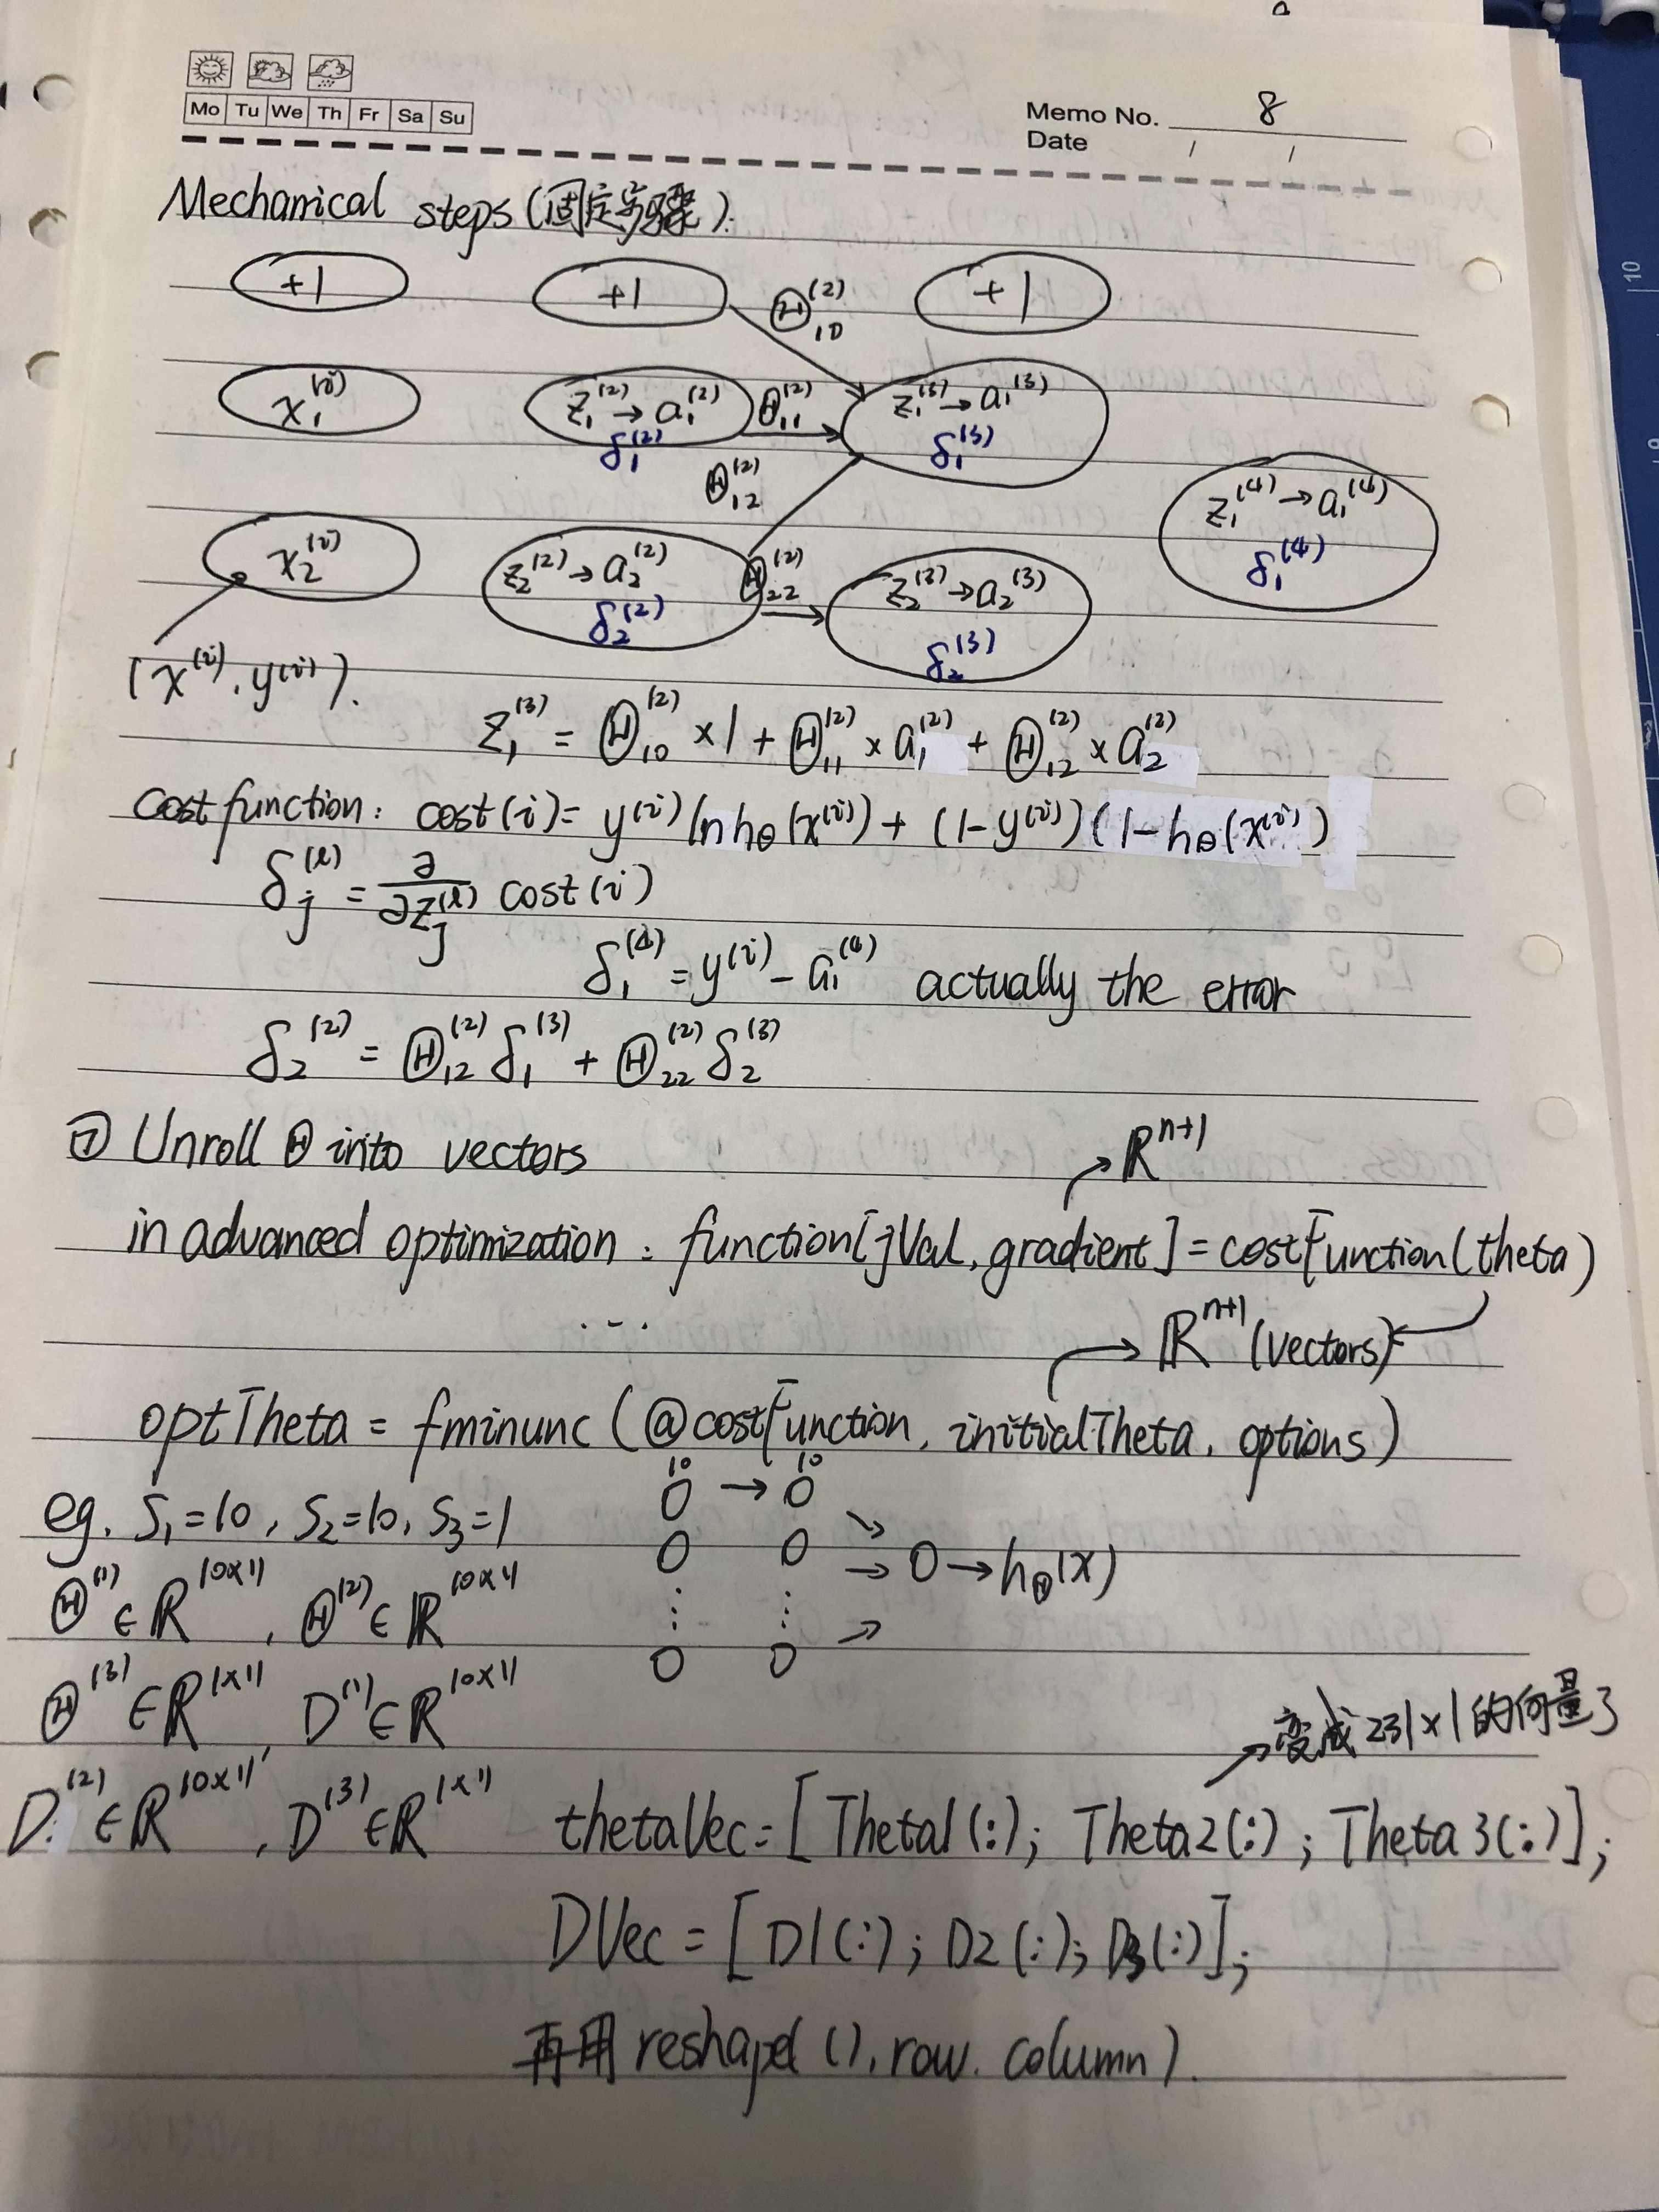 Mo Tu We Th Fr Sa Su
Memo No. 8
Date / /
Mechanical steps (固定步骤).
+1 +1 Θ₁₀⁽²⁾ +1
x₁⁽ⁱ⁾ z₁⁽²⁾→a₁⁽²⁾ Θ₁₁⁽²⁾ z₁⁽³⁾→a₁⁽³⁾
δ₁⁽²⁾ δ₁⁽³⁾
Θ₁₂⁽²⁾ z₁⁽⁴⁾→a₁⁽⁴⁾
δ₁⁽⁴⁾
x₂⁽ⁱ⁾ z₂⁽²⁾→a₂⁽²⁾ Θ₂₂⁽²⁾ z₂⁽³⁾→a₂⁽³⁾
δ₂⁽²⁾ δ₂⁽³⁾
(x⁽ⁱ⁾, y⁽ⁱ⁾).
z₁⁽³⁾ = Θ₁₀⁽²⁾ × 1 + Θ₁₁⁽²⁾ × a₁⁽²⁾ + Θ₁₂⁽²⁾ × a₂⁽²⁾
cost function: cost(i) = y⁽ⁱ⁾ ln hθ(x⁽ⁱ⁾) + (1-y⁽ⁱ⁾)(1-hθ(x⁽ⁱ⁾)
δⱼ⁽ˡ⁾ = ∂/∂zⱼ⁽ˡ⁾ cost(i)
δ₁⁽⁴⁾ = y⁽ⁱ⁾ - a₁⁽⁴⁾ actually the error
δ₂⁽²⁾ = Θ₁₂⁽²⁾ δ₁⁽³⁾ + Θ₂₂⁽²⁾ δ₂⁽³⁾
⑦ Unroll Θ into vectors
→ ℝⁿ⁺¹
in advanced optimization: function [jVal, gradient] = costFunction(theta)
... → ℝⁿ⁺¹ (vectors) ←
optTheta = fminunc (@costFunction, initialTheta, options)
10 10
eg. S₁=10, S₂=10, S₃=1 O → O
O O → O → hΘ(x)
Θ⁽¹⁾ ∈ ℝ^10×11, Θ⁽²⁾ ∈ ℝ^10×11
Θ⁽³⁾ ∈ ℝ^1×11, D⁽¹⁾ ∈ ℝ^10×11
→ 变成231×1的向量了
D⁽²⁾ ∈ ℝ^10×11, D⁽³⁾ ∈ ℝ^1×11 thetaVec = [Theta1(:); Theta2(:); Theta3(:)];
DVec = [D1(:); D2(:); D3(:)];
再用 reshaped (), row. column).